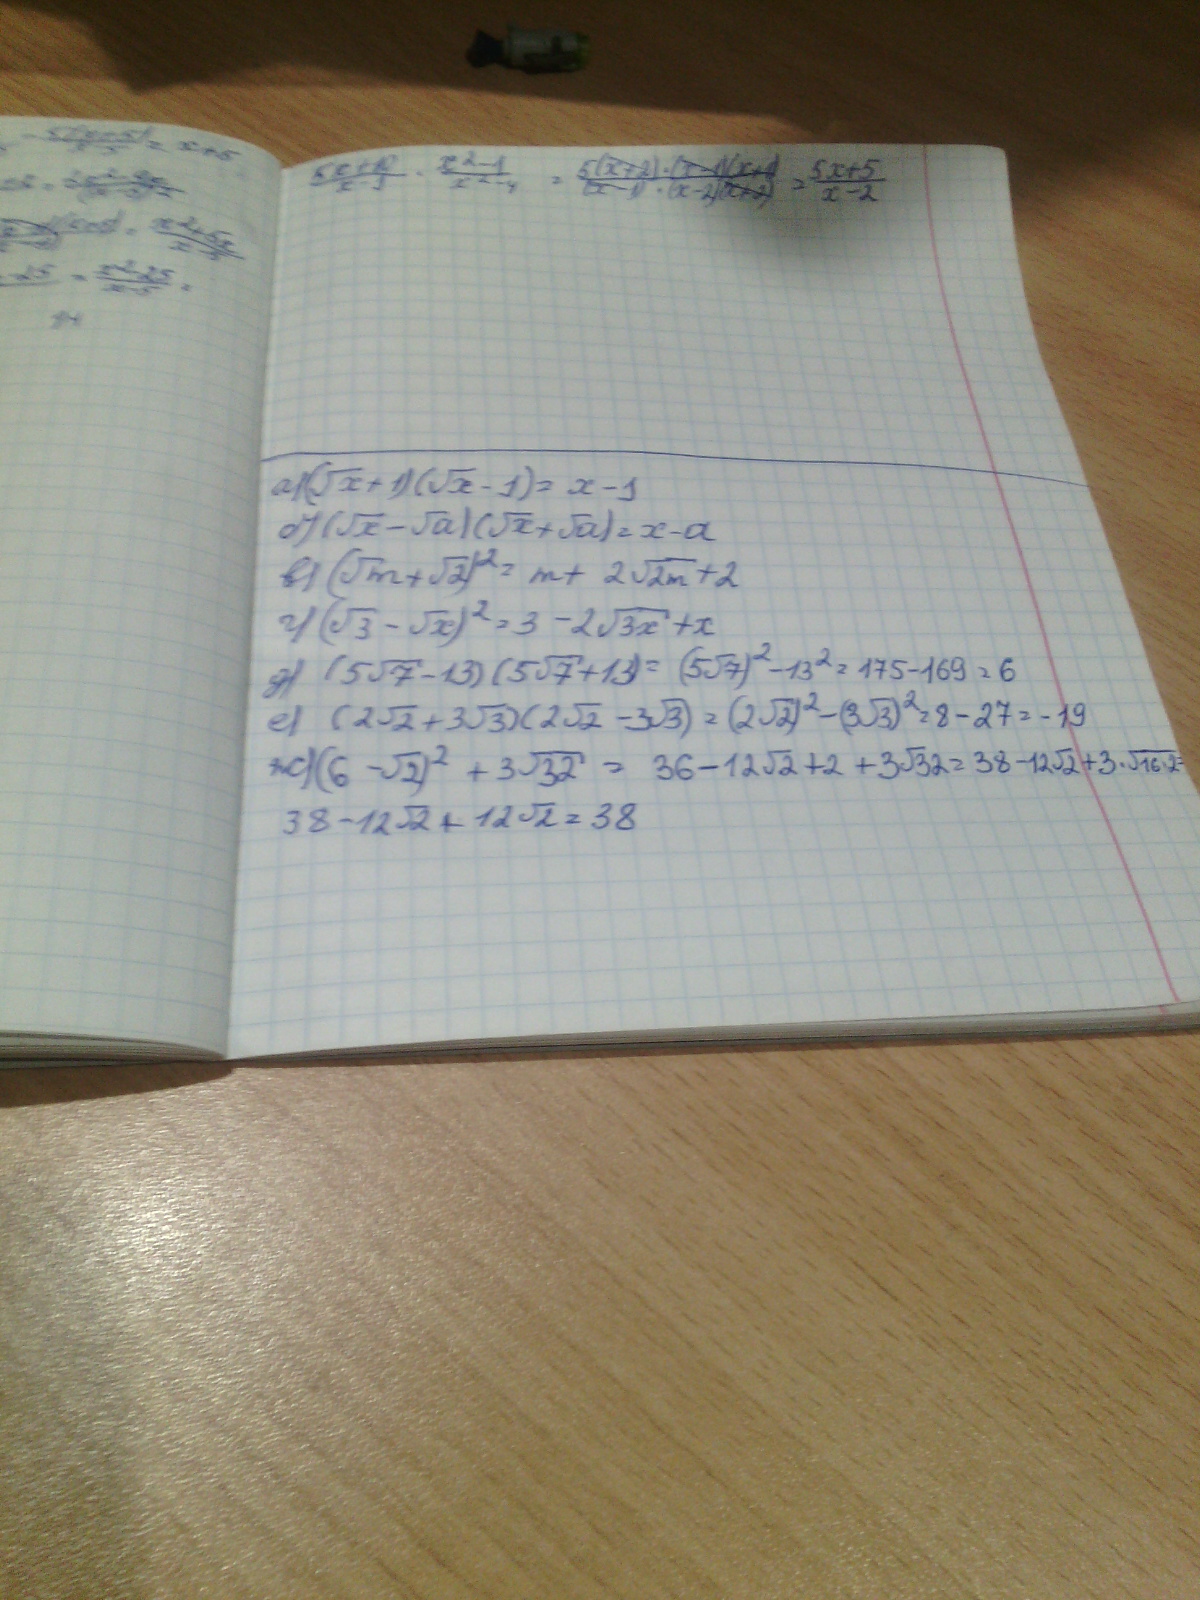 5(x+5)/x-5 = x+5
= x²+5x/x-5
-25 = x²-25/x-5 =
5x+10/x-1 · x²-1/x²-4 = 5(x+2)·(x-1)(x+1)/(x-1)·(x-2)(x+2) = 5x+5/x-2
а) (√x+1)(√x-1) = x-1
б) (√x-√a)(√x+√a) = x-a
в) (√m+√2)² = m+ 2√2m+2
г) (√3-√x)² = 3-2√3x+x
д) (5√7-13)(5√7+13) = (5√7)²-13² = 175-169 = 6
е) (2√2+3√3)(2√2-3√3) = (2√2)²-(3√3)² = 8-27 = -19
ж) (6-√2)²+3√32 = 36-12√2+2+3√32 = 38-12√2+3·√16·2=
38-12√2+12√2 = 38